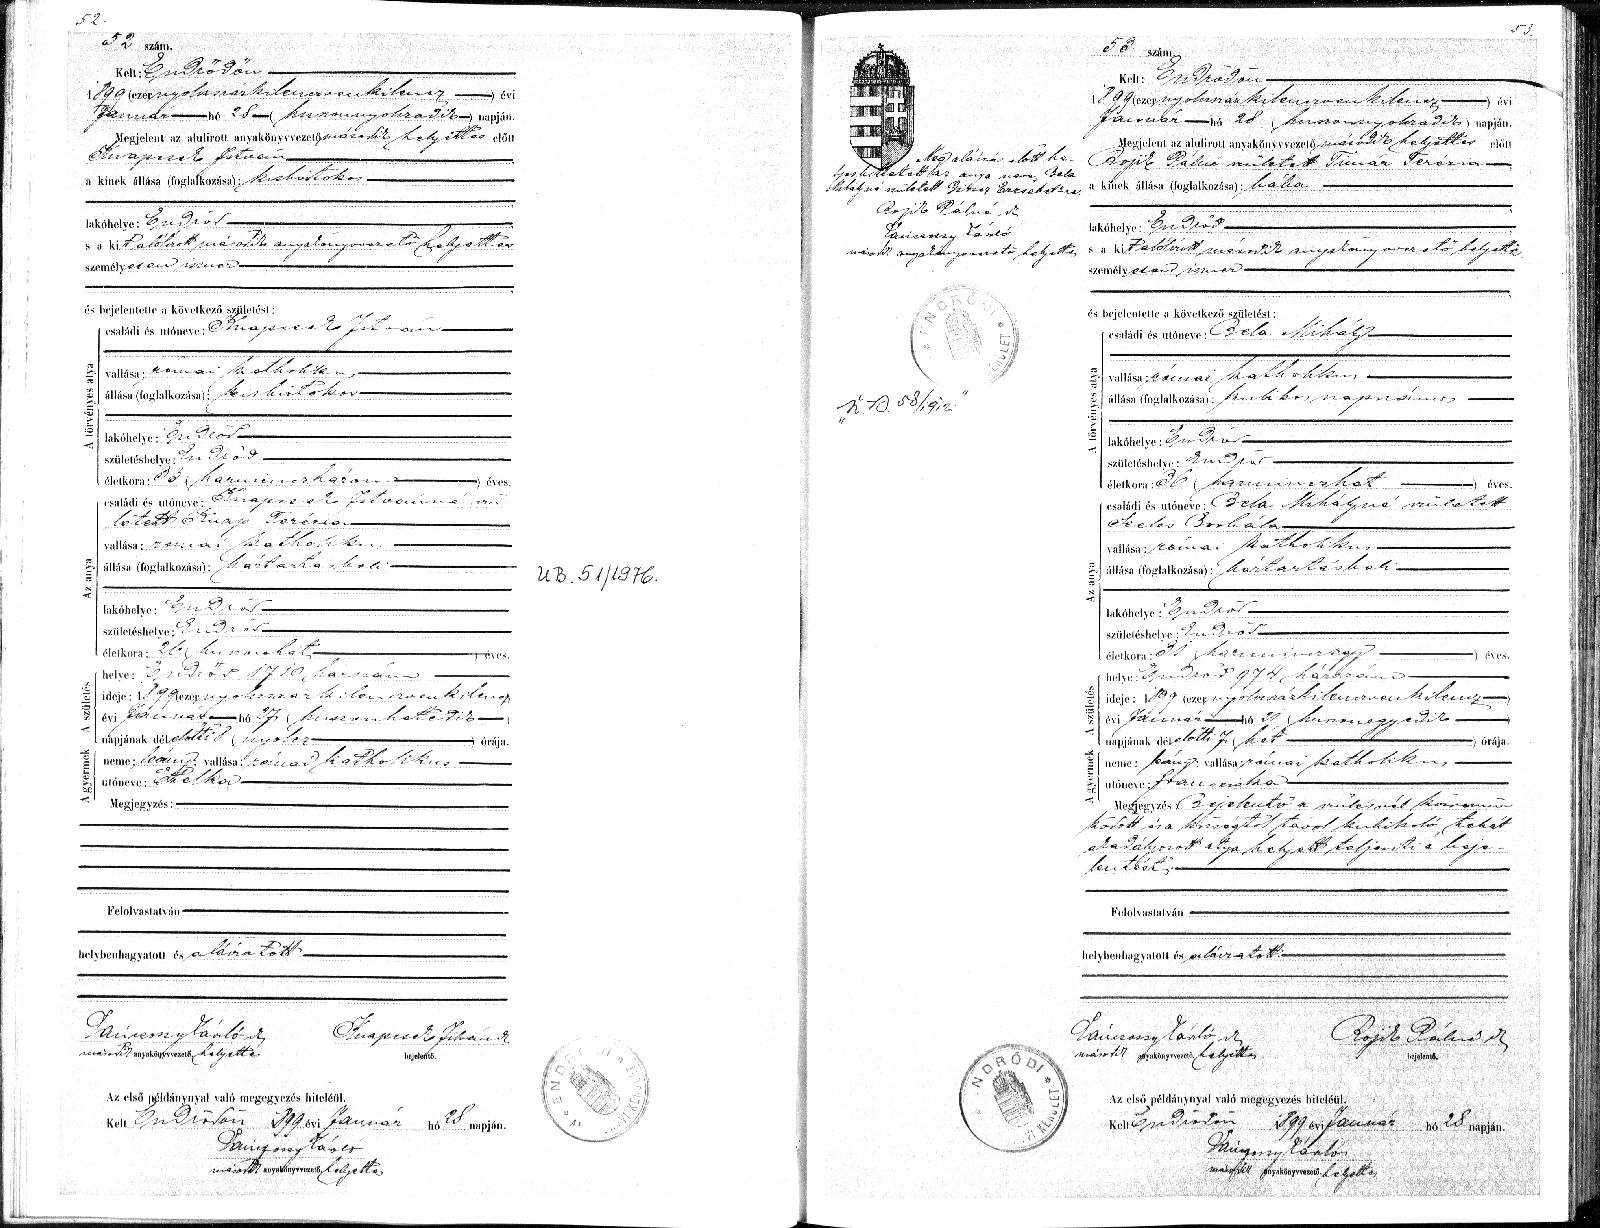 52.
52 szám.
Kelt: Endrődön
1899 (ezernyolcszázkilencvenkilencz) évi
Január hó 28 (huszonnyolczadik) napján.
Megjelent az alulirott anyakönyvvezető második helyettes előtt
Knapcsek István
a kinek állása (foglalkozása): kisbirtokos
lakóhelye: Endrőd
s a kit alólirott második anyakönyvvezető helyettes
személyesen ismer
és bejelentette a következő születést:
A törvényes atya
családi és utóneve: Knapcsek István
vallása: római katholikus
állása (foglalkozása): kisbirtokos
lakóhelye: Endrőd
születéshelye: Endrőd
életkora: 33 (harminczhárom) éves.
Az anya
családi és utóneve: Knapcsek Istvánné szü-
letett Knap Terézia
vallása: római katholikus
állása (foglalkozása): háztartásbeli
lakóhelye: Endrőd
születéshelye: Endrőd
életkora: 26 (huszonhat) éves.
A születés
helye: Endrőd 1710 házszám
ideje: 1899 (ezernyolczszázkilenczvenkilencz)
évi Január hó 27 (huszonhetedik)
napjának délelőtti 8 (nyolcz) órája.
A gyermek
neme: leány; vallása: római katholikus
utóneve: Etelka
Megjegyzés:
Felolvastatván
helybenhagyatott és aláiratott
Lánczossy László sk
második anyakönyvvezető helyettes
Knapcsek István sk
bejelentő.
Az első példánynyal való megegyezés hiteléül.
Kelt Endrődön 1899 évi Január hó 28 napján.
második anyakönyvvezető helyettes
UB. 51/1976.
ENDRŐDI
53.
Meg aláirás előtt he-
született
Rojik Pálné sk
második anyakönyvvezető helyettes
ENDRŐDI
58/1912
53 szám.
Kelt: Endrődön
1899 (ezernyolczszázkilenczvenkilencz) évi
Január hó 28 (huszonnyolczadik) napján.
Megjelent az alulirott anyakönyvvezető második helyettes előtt
Rojik Pálné született Timár Terézia
a kinek állása (foglalkozása): bába
lakóhelye: Endrőd
s a kit alólirott második anyakönyvvezető helyettes
személyesen ismer
és bejelentette a következő születést:
A törvényes atya
családi és utóneve: Bela Mihály
vallása: római katholikus
állása (foglalkozása): kubikos napszámos
lakóhelye: Endrőd
születéshelye: Endrőd
életkora: 36 (harminczhat) éves.
Az anya
családi és utóneve: Bela Mihályné született
Szelos Borbála
vallása: római katholikus
állása (foglalkozása): háztartásbeli
lakóhelye: Endrőd
születéshelye: Endrőd
életkora: 31 (harminczegy) éves.
A születés
helye: Endrőd 974 házszám
ideje: 1899 (ezernyolczszázkilenczvenkilencz)
évi Január hó 21 (huszonegyedik)
napjának délelőtti 7 (hét) órája.
A gyermek
neme: leány; vallása: római katholikus
utóneve: Francziska
Megjegyzés: Bejelentő a szülésnél közremű-
ködött és a községtől távol kubikoló, tehát
akadályozott atya helyett teljesiti a beje-
lentést.
Felolvastatván
helybenhagyatott és aláiratott
Lánczossy László sk
második anyakönyvvezető helyettes
Rojik Pálné sk
bejelentő.
ENDRŐDI
Az első példánynyal való megegyezés hiteléül.
Kelt Endrődön 1899 évi Január hó 28 napján.
második anyakönyvvezető helyettes